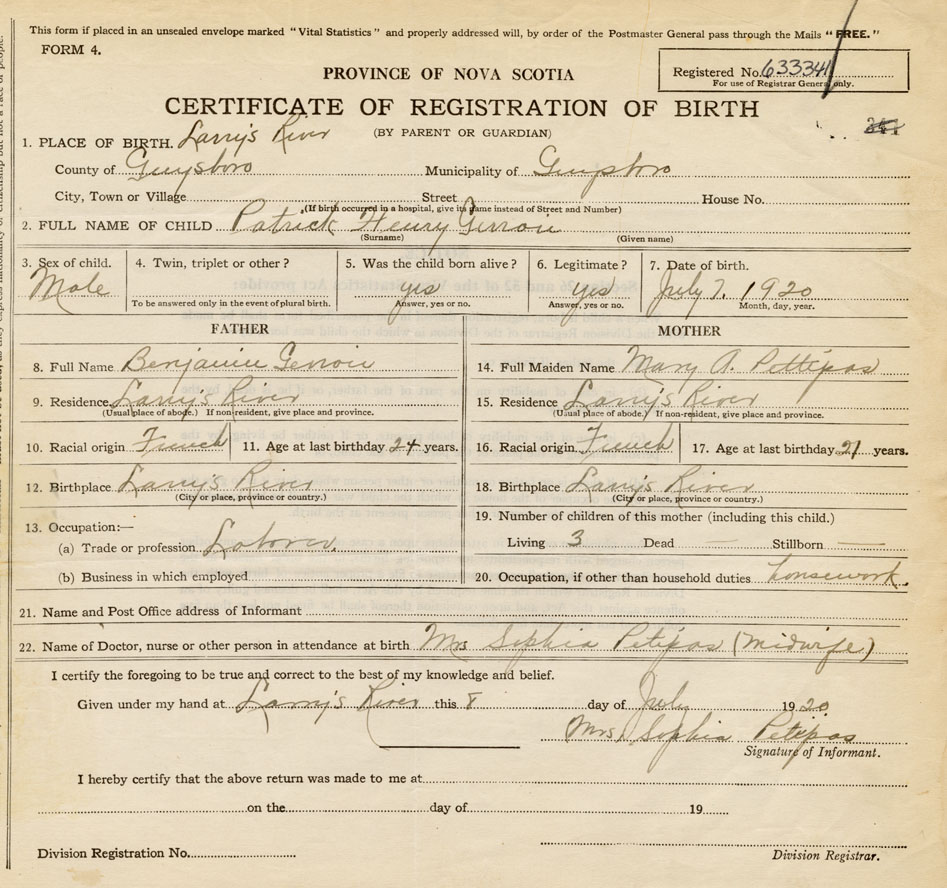 This form if placed in an unsealed envelope marked "Vital Statistics" and properly addressed will, by order of the Postmaster General pass through the Mails "FREE."
FORM 4.
Registered No. 633341
For use of Registrar General only.
PROVINCE OF NOVA SCOTIA
CERTIFICATE OF REGISTRATION OF BIRTH
(BY PARENT OR GUARDIAN)
1. PLACE OF BIRTH. Larry's River
County of Guysboro Municipality of Guysboro
City, Town or Village Street House No.
(If birth occurred in a hospital, give its name instead of Street and Number)
2. FULL NAME OF CHILD Patrick Henry Gerroir
(Surname) (Given name)
3. Sex of child. 4. Twin, triplet or other? 5. Was the child born alive? 6. Legitimate? 7. Date of birth.
Male yes yes July 7. 1920
To be answered only in the event of plural birth. Answer, yes or no. Answer, yes or no. Month, day, year.
FATHER
8. Full Name Benjamin Gerroir
9. Residence Larry's River
(Usual place of abode.) If non-resident, give place and province.
10. Racial origin French 11. Age at last birthday 24 years.
12. Birthplace Larry's River
(City or place, province or country.)
13. Occupation:—
(a) Trade or profession Laborer.
(b) Business in which employed
MOTHER
14. Full Maiden Name Mary A. Pettipas
15. Residence Larry's River
(Usual place of abode.) If non-resident, give place and province.
16. Racial origin French 17. Age at last birthday 21 years.
18. Birthplace Larry's River
(City or place, province or country.)
19. Number of children of this mother (including this child.)
Living 3 Dead — Stillborn —
20. Occupation, if other than household duties housework.
21. Name and Post Office address of Informant
22. Name of Doctor, nurse or other person in attendance at birth Mrs Sophia Petipas (midwife)
I certify the foregoing to be true and correct to the best of my knowledge and belief.
Given under my hand at Larry's River this 8 day of July 1920
Mrs. Sophia Petipas
Signature of Informant.
I hereby certify that the above return was made to me at
on the day of 19
Division Registration No.
Division Registrar.